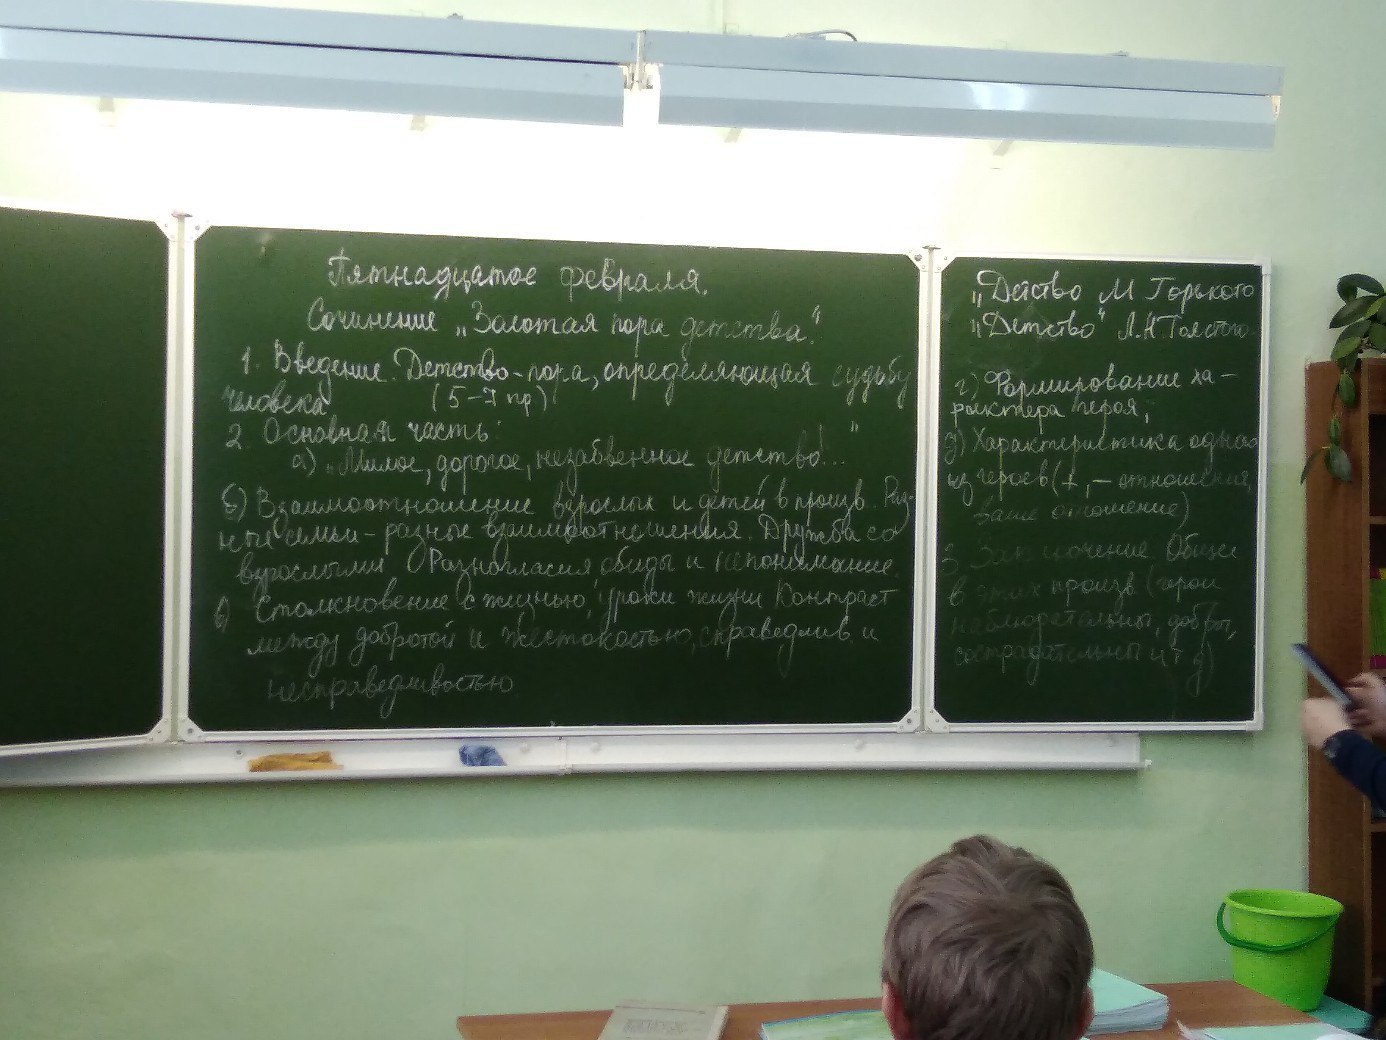 Пятнадцатое февраля.
Сочинение „Золотая пора детства."
1. Введение. Детство - пора, определяющая судьбу
человека (5-7 пр)
2. Основная часть:
а) „Милое, дорогое, незабвенное детство!..."
б) Взаимоотношение взрослых и детей в произв. Раз-
ные семьи - разные взаимоотношения. Дружба со
взрослыми. Разногласия, обиды и непонимание.
в) Столкновение с жизнью, уроки жизни Контраст
между добротой и жестокостью, справедлив. и
несправедливостью
„Детство М Горького
„Детство" Л.Н Толстого
г) Формирование ха-
рактера героя,
д) Характеристика одного
из героев (+, - отношения,
ваше отношение)
3. Заключение. Общее
в этих произв (герои
наблюдательны, добры,
сострадательны и т д)